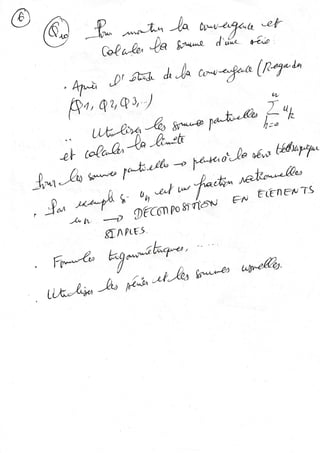 6
Q10 Pour montrer la convergence et
calculer la somme d'une série.
. Après l'étude de la convergence (Regarder
(Q1, Q2, Q3, ...)
.. Utiliser les sommes partielles n ∑ k=0 uk
et calculer la limite
Pour les sommes partielles → penser à la série télescopique
. Par exemple si un est une fraction rationnelles
en n → DÉCOMPOSITION EN ELEMENTS
SIMPLES.
. Formules trigonométriques, .....
. Utiliser les séries et les sommes usuelles.